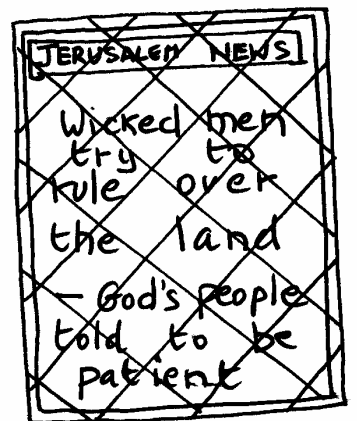 JERUSALEM NEWS
Wicked men
try to
rule over
the land
– God's people
told to be
patient